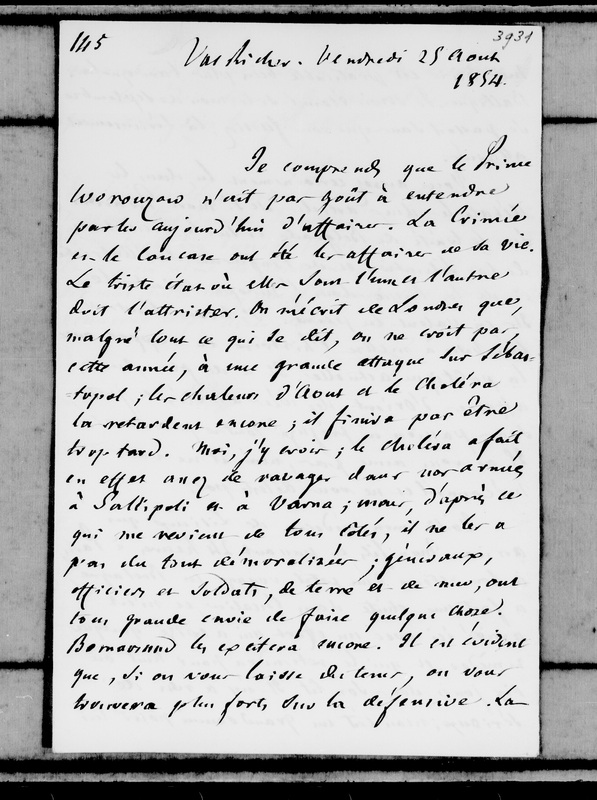 1115
3931
Val Richer. Vendredi 25 Août
1854.
Je comprends que le Prince
Worouzow n'ait pas goût à entendre
parler aujourd'hui d'affaires. La Crimée
et le Caucase ont été les affaires de sa vie.
Le triste état où elles sont l'une et l'autre
doit l'attrister. On m'écrit de Londres que,
malgré tout ce qui se dit, on ne croit pas,
cette année, à une grande attaque sur Sébas-
topol ; les chaleurs d'Aout et le Choléra
la retardent encore ; il finira par être
trop tard. Moi, j'y crois ; le choléra a fait
en effet assez de ravages dans nos armées
à Gallipoli et à Varna ; mais, d'après ce
qui me revient de tous côtés, il ne les a
pas du tout démoralisées ; généraux,
officiers et soldats, de terre et de mer, ont
tous grande envie de faire quelque chose.
Bomarsund les excitera encore. Il est évident
que, si on vous laisse du temps, on vous
trouvera plus forts sur la défensive. La